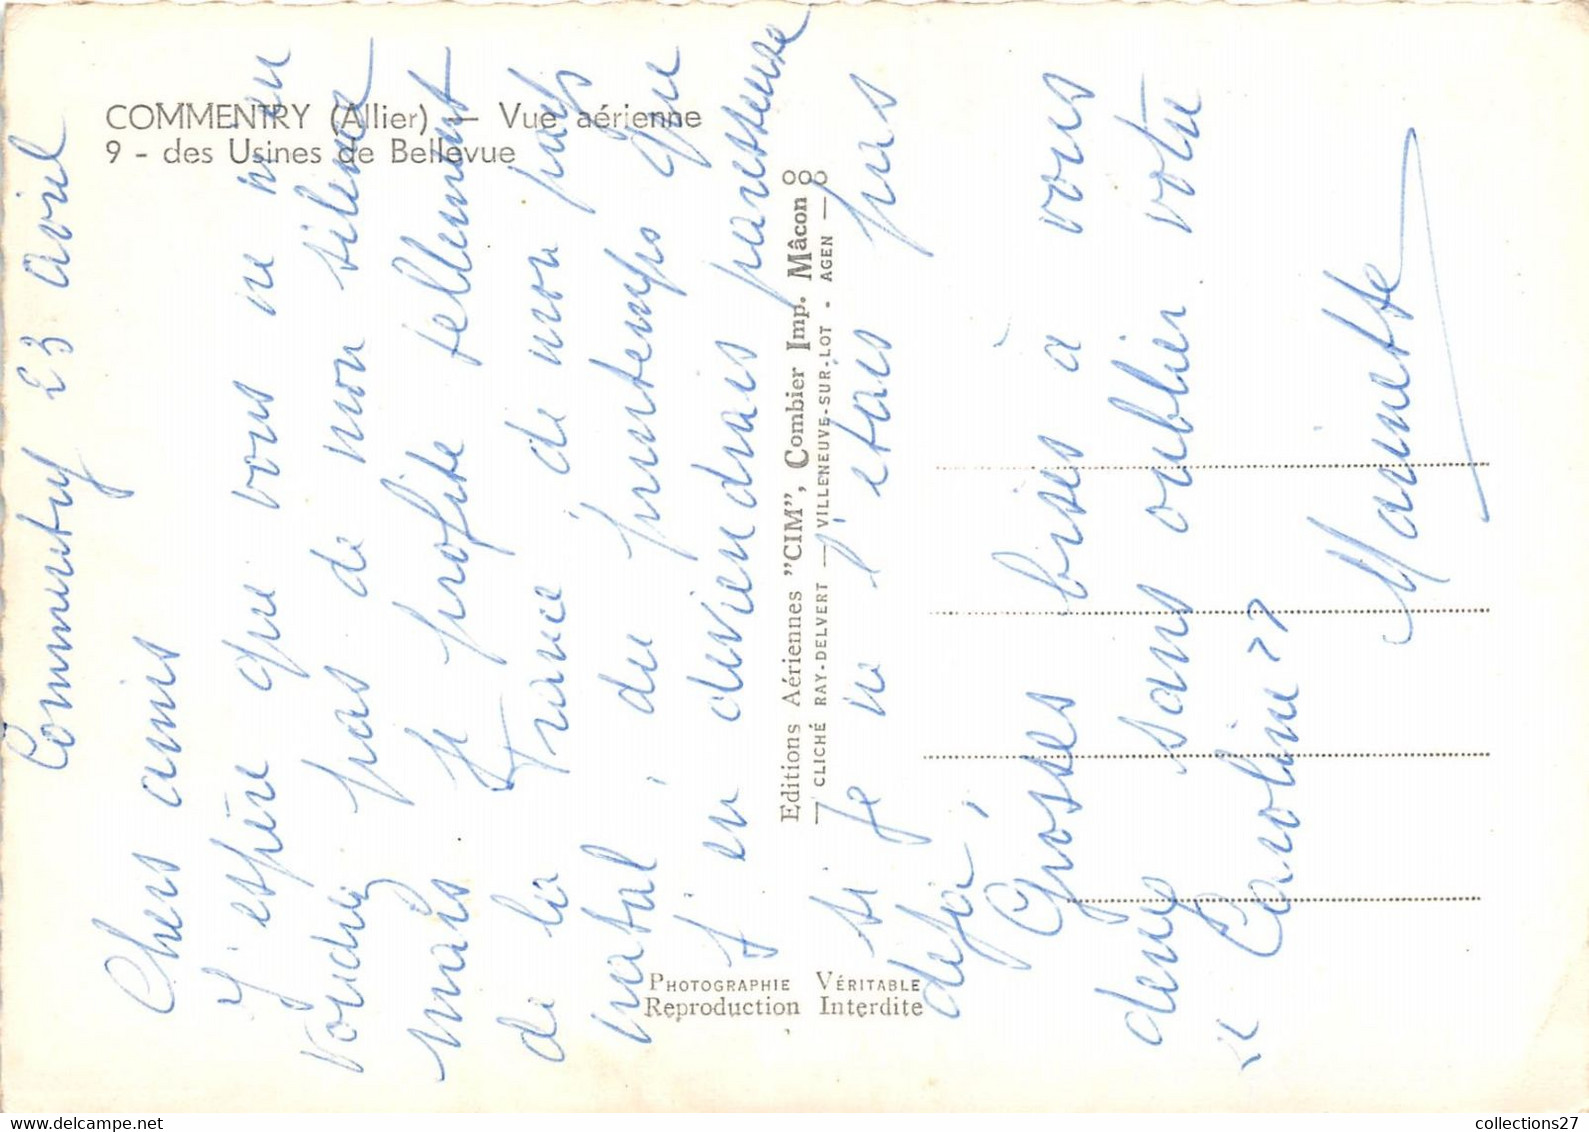 COMMENTRY (Allier) — Vue aérienne
9 - des Usines de Bellevue
Commentry 23 avril
Chers amis
J'espère que vous ne m'en
voudrez pas de mon silence
mais je profite tellement
de la France de mon pays
natal, du printemps que
j'en deviendrais paresseuse
si je ne l'étais pas
déjà,
Grosses bises à vous
deux sans oublier votre
« Caroline »
Marinette
Editions Aériennes "CIM", Combier Imp. Mâcon
CLICHÉ RAY-DELVERT — VILLENEUVE-SUR-LOT - AGEN —
PHOTOGRAPHIE VÉRITABLE
Reproduction Interdite
collections27